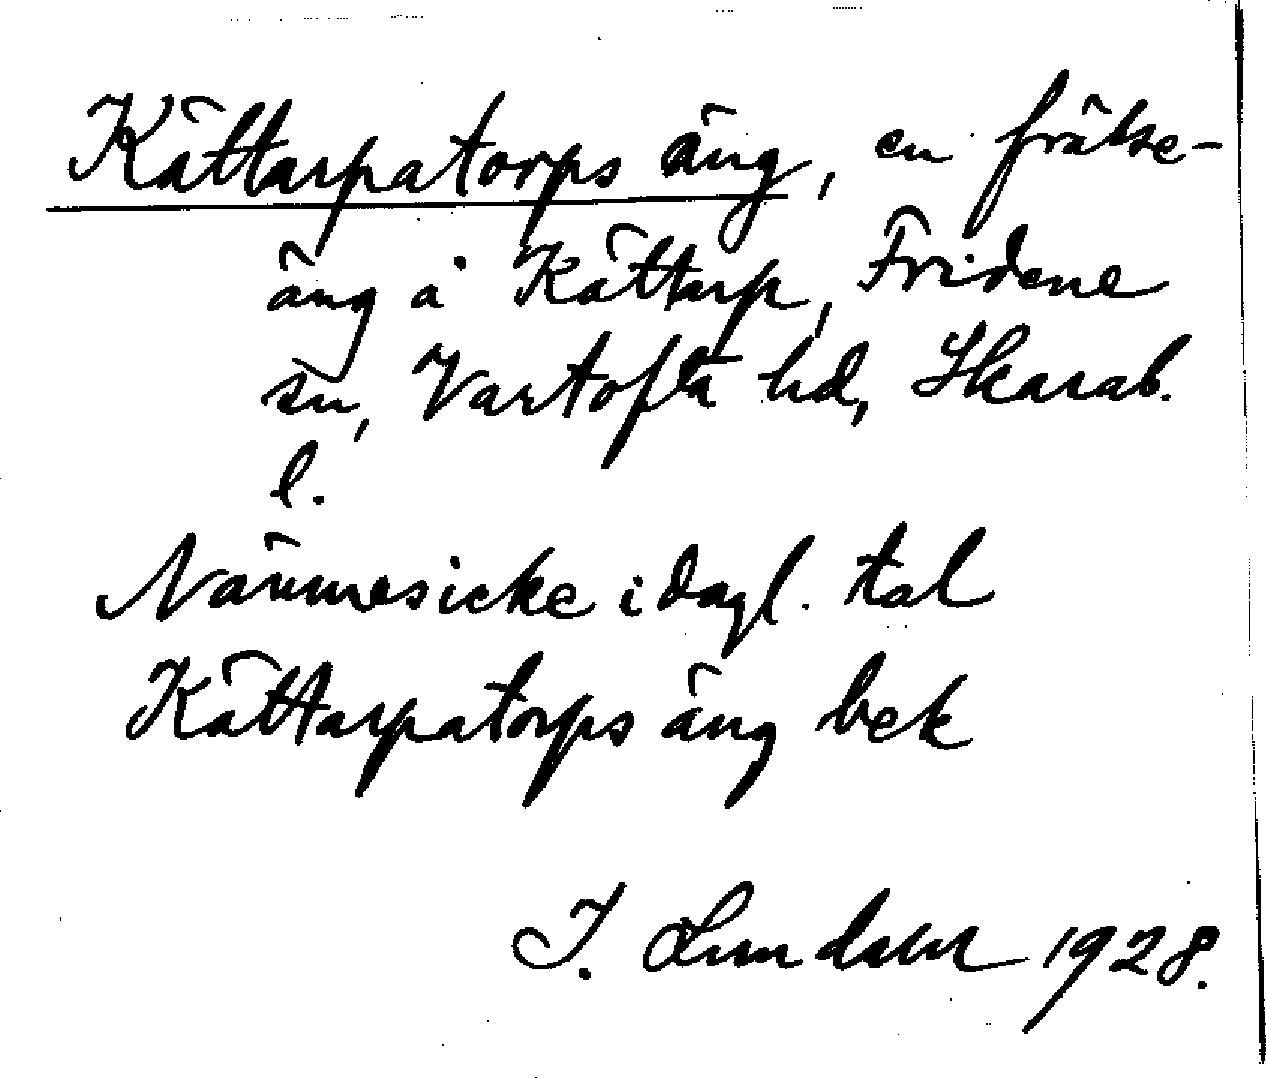 Kättarpatorps äng, en frälse-
äng å Kättarp, Fridene
sn, Vartofta hd, Skarab.
l.
Nämnes icke i dagl. tal
Kättarpatorps äng bek
I. Lundahl 1928.